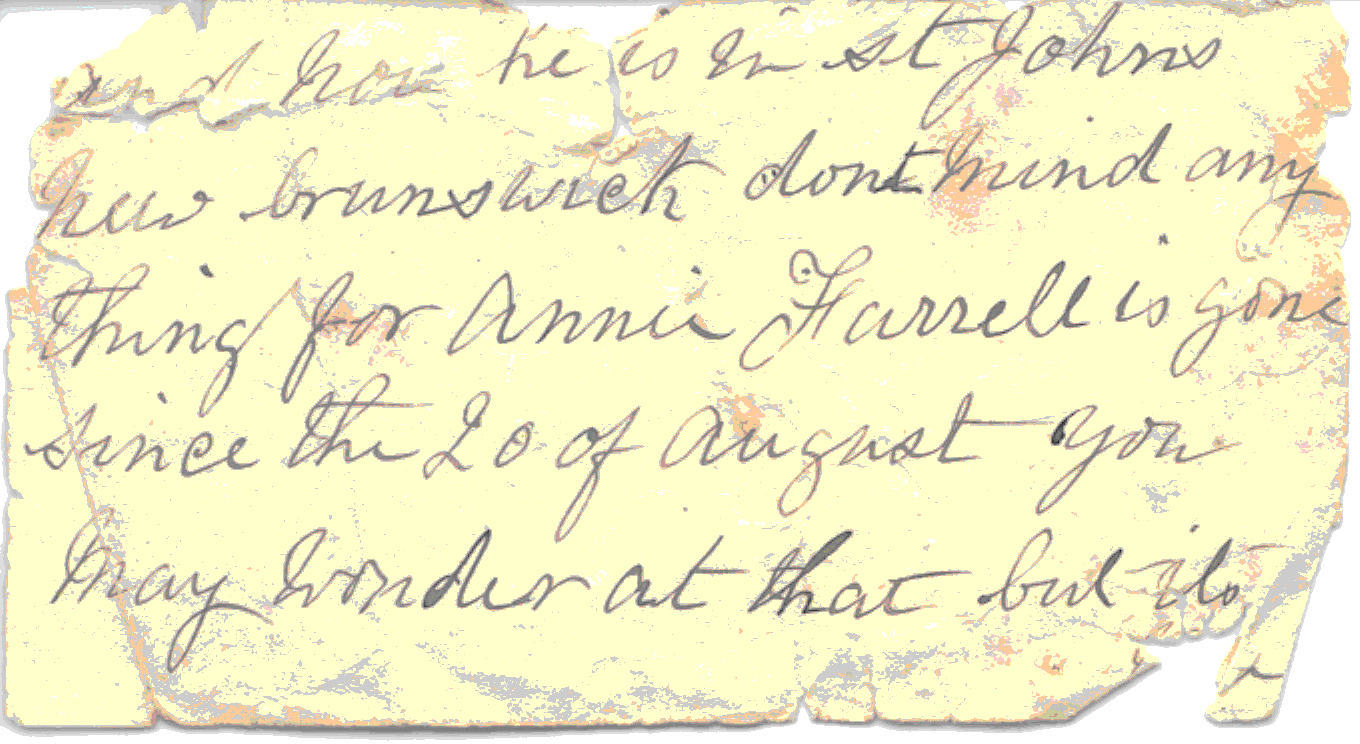 and now he is in st Johns
new brunswick dont mind any
thing for Annie Farrell is gone
since the 20 of August you
may wonder at that but its